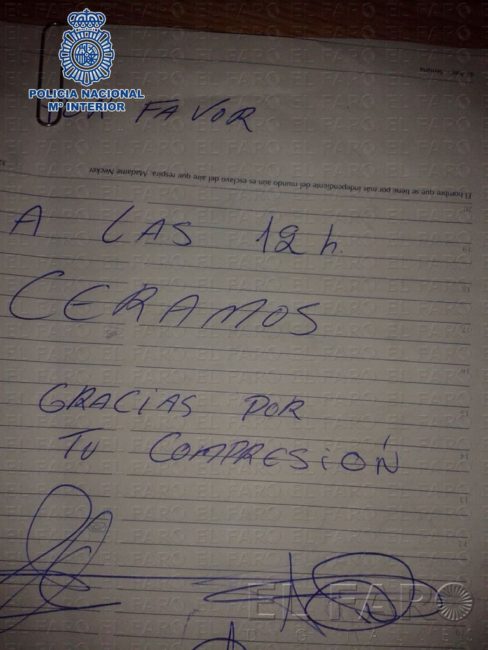 POLICIA NACIONAL
Mº INTERIOR
POR FAVOR
El hombre que se tiene por más independiente del mundo aún es esclavo del aire que respira. Madame Necker
A LAS 12 h.
CERAMOS
GRACIAS POR
TU COMPRESIÓN
EL FARO